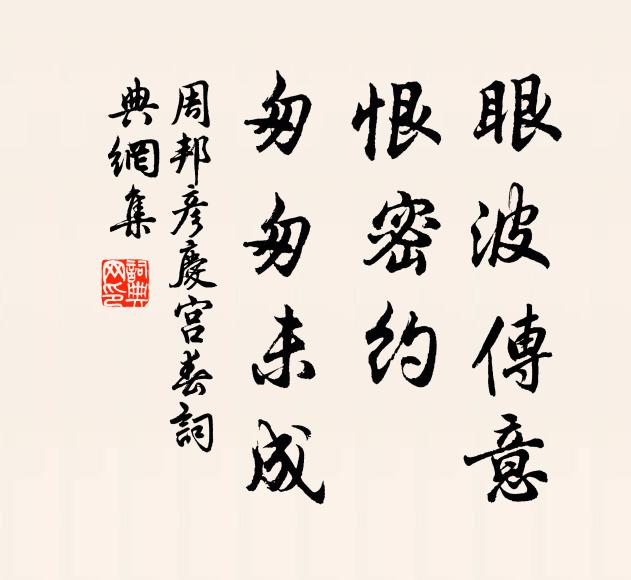 眼波傳意
恨密約
匆匆未成
周邦彥慶宮春詞
典網集
詞典網印